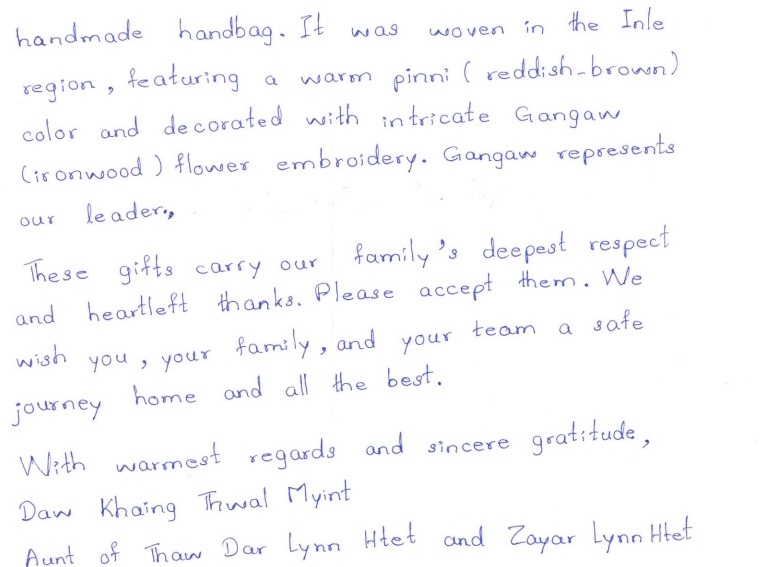 handmade handbag. It was woven in the Inle
region, featuring a warm pinni (reddish-brown)
color and decorated with intricate Gangaw
(ironwood) flower embroidery. Gangaw represents
our leader.,
These gifts carry our family's deepest respect
and heartleft thanks. Please accept them. We
wish you, your family, and your team a safe
journey home and all the best.
With warmest regards and sincere gratitude,
Daw Khaing Thwal Myint
Aunt of Thaw Dar Lynn Htet and Zayar Lynn Htet